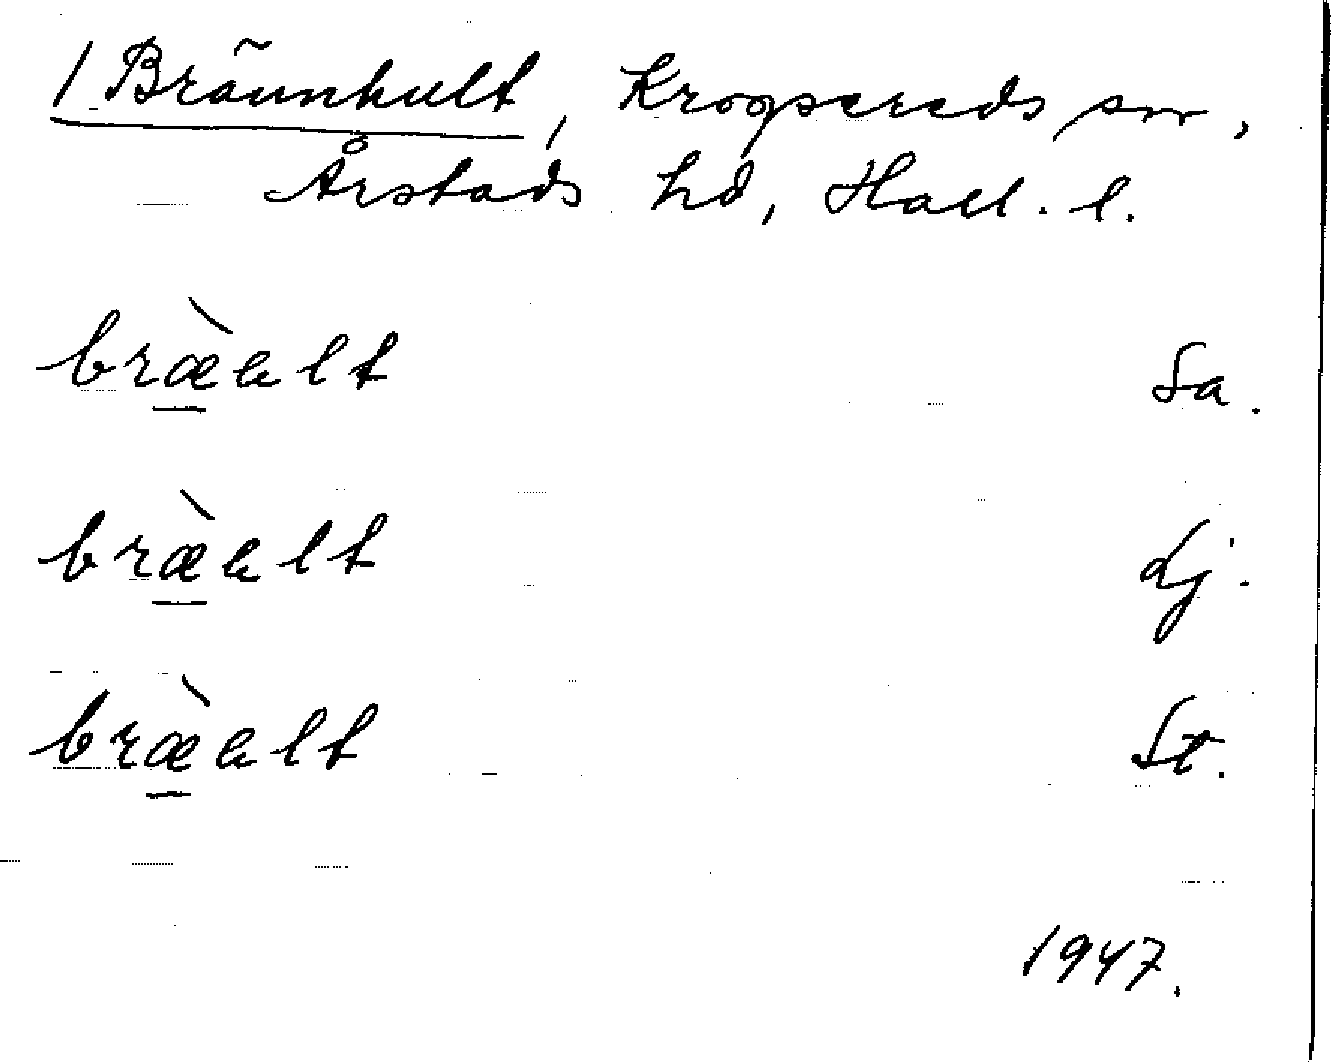 1 Bräunhult, Krogsereds sn,
Årstads hd, Hall. l.
bræ̀ält Sa.
bræ̀ält Lj.
bræ̀ält St.
1947.